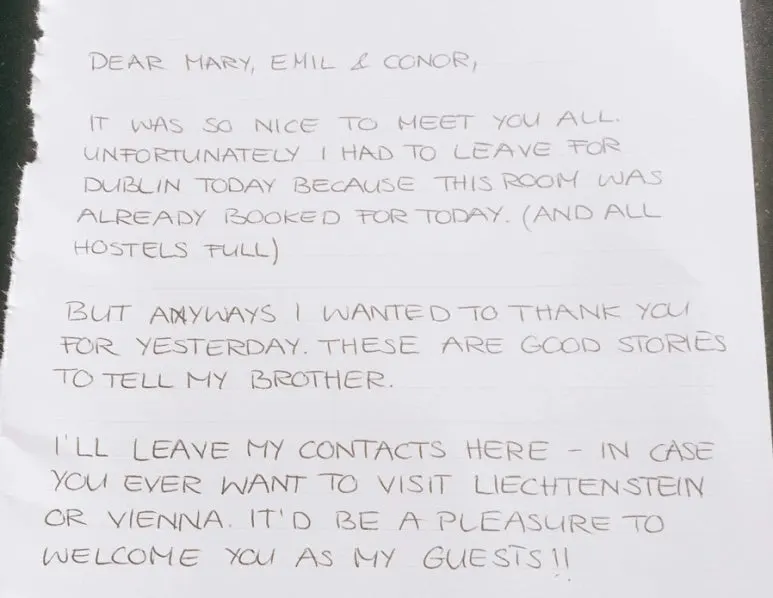 DEAR MARY, EMIL & CONOR,
IT WAS SO NICE TO MEET YOU ALL.
UNFORTUNATELY I HAD TO LEAVE FOR
DUBLIN TODAY BECAUSE THIS ROOM WAS
ALREADY BOOKED FOR TODAY. (AND ALL
HOSTELS FULL)
BUT ANYWAYS I WANTED TO THANK YOU
FOR YESTERDAY. THESE ARE GOOD STORIES
TO TELL MY BROTHER.
I'LL LEAVE MY CONTACTS HERE – IN CASE
YOU EVER WANT TO VISIT LIECHTENSTEIN
OR VIENNA. IT'D BE A PLEASURE TO
WELCOME YOU AS MY GUESTS!!